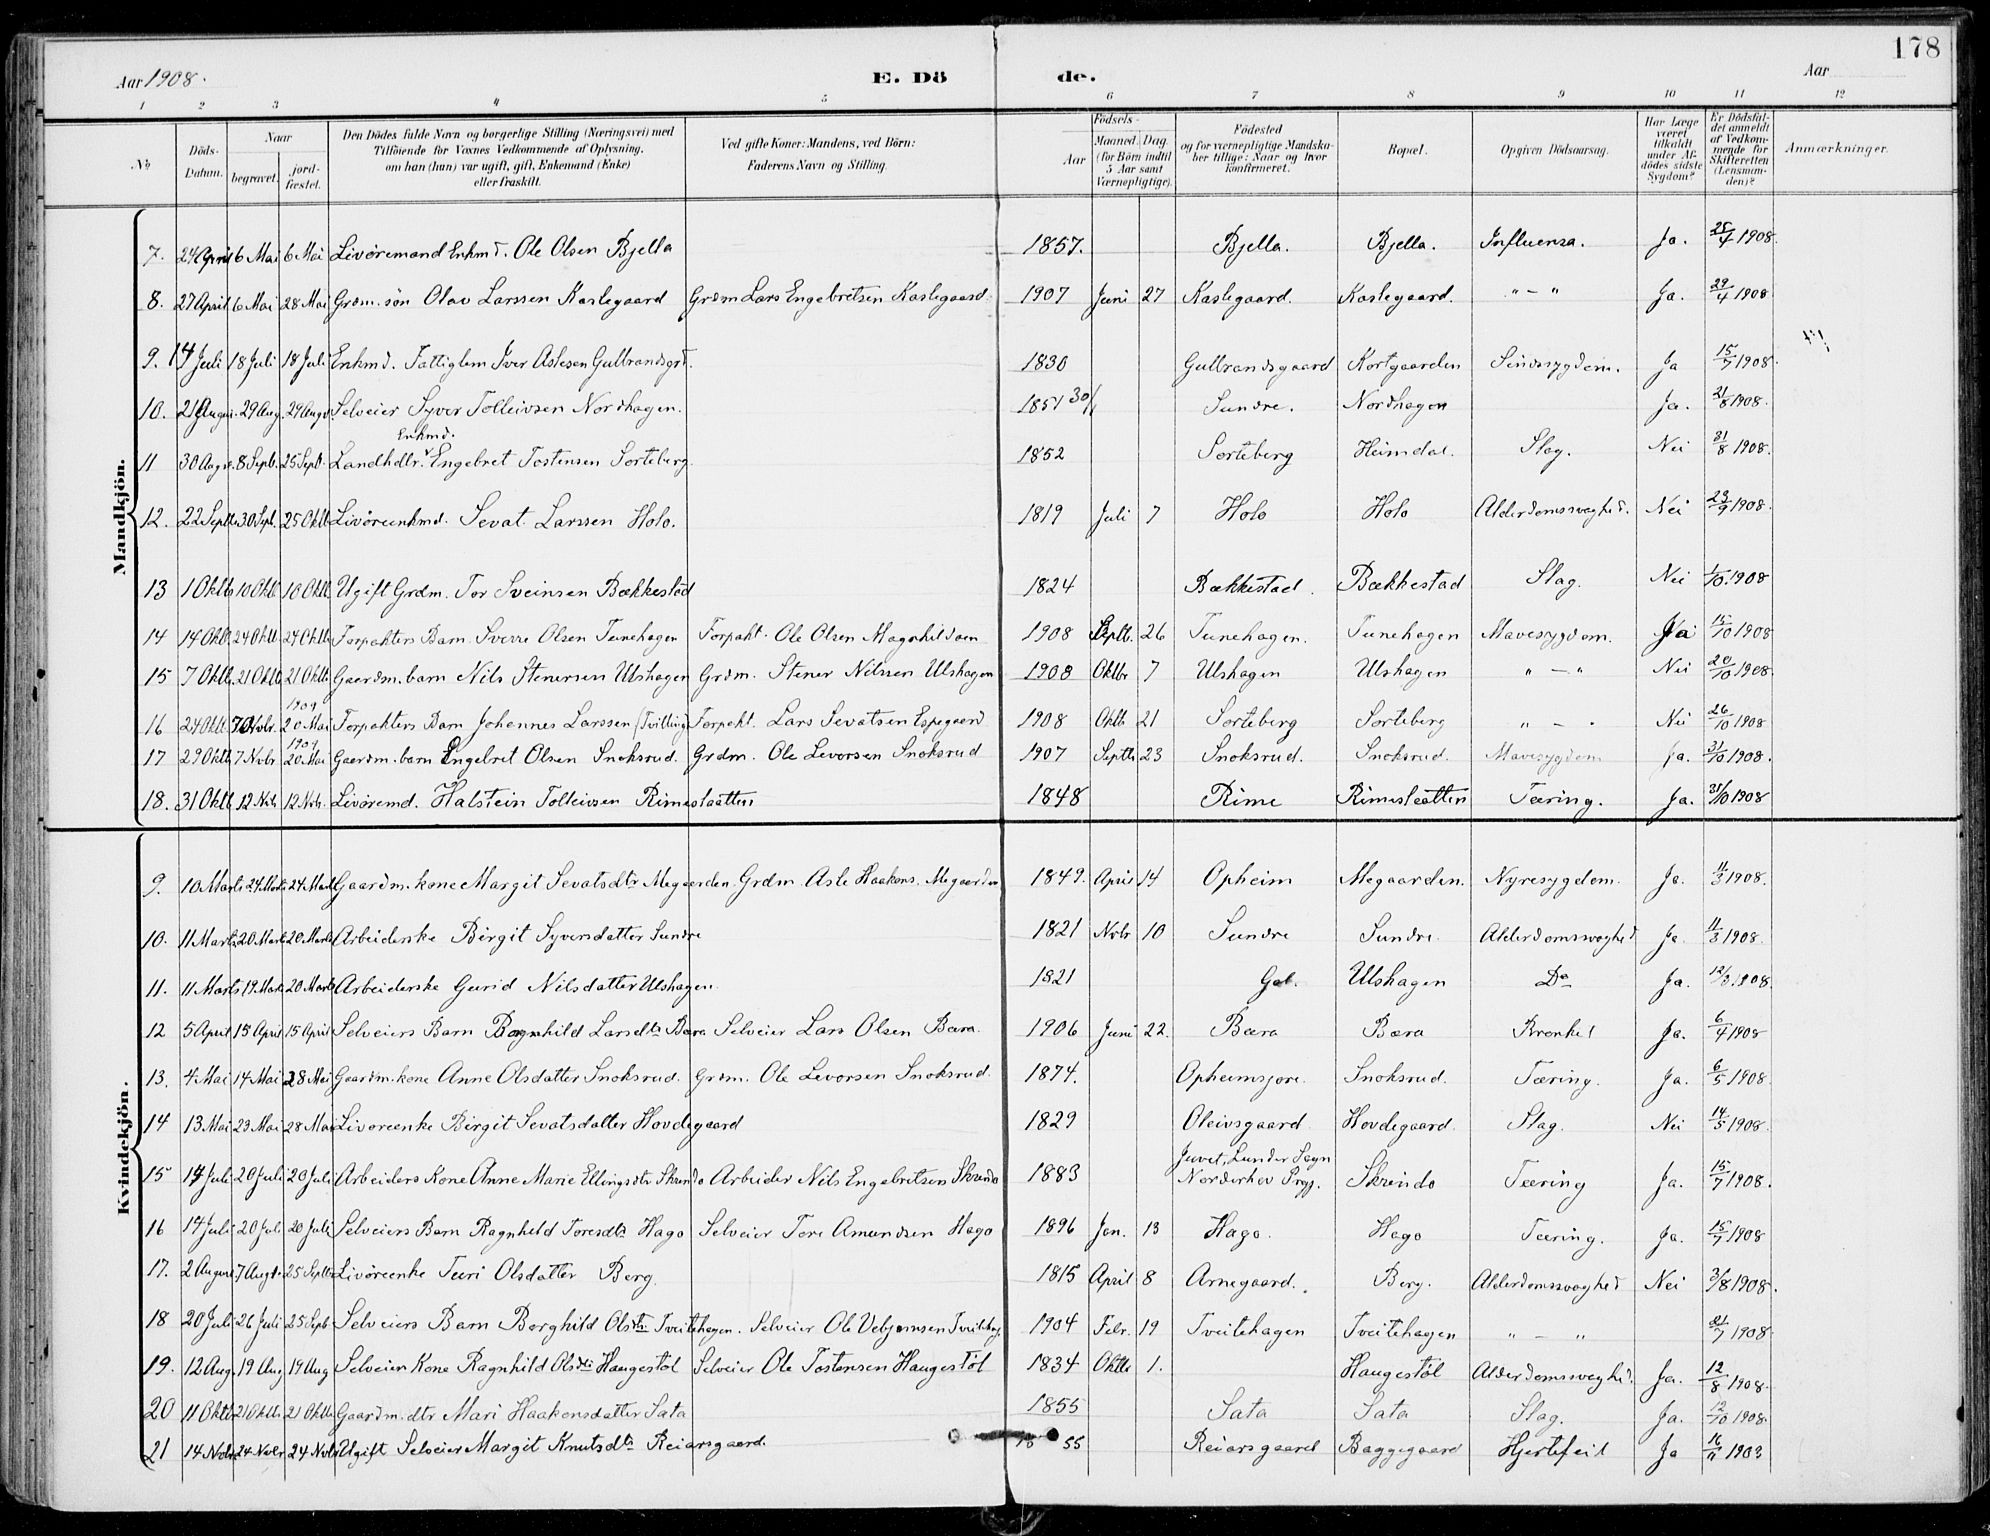 178
Aar 1908.
E. Dö de.
Aar
1 2 3 4 5 6 7 8 9 10 11 12
No
Döds-Datum.
Naar
begravet.
jord-fæstet.
Den Dödes fulde Navn og borgerlige Stilling (Næringsvei) med Tilföiende for Voxnes Vedkommende af Oplysning, om han (hun) var ugift, gift, Enkemand (Enke) eller fraskilt.
Ved gifte Koner: Mandens, ved Börn: Faderens Navn og Stilling.
Födsels-
Aar
Maaned. Dag.
(for Börn indtil 5 Aar samt Værnepligtige).
Födested og for værnepligtige Mandskaber tillige: Naar og hvor konfirmeret.
Bopæl.
Opgiven Dödsaarsag.
Har Læge været tilkaldt under Afdödes sidste Sygdom?
Er Dödsfaldet anmeldt af Vedkommende for Skifteretten (Lensmanden)?
Anmærkninger.
Mandkjön.
7. 24 April 6 Mai 6 Mai Livøremand Enkmd. Ole Olsen Bjella 1857. Bjella. Bjella. Influensa. Ja. 28/4 1908.
8. 27 April 6 Mai 28 Mai Grdm. søn Olav Larssen Kaslegaard Grdm Lars Engebretsen Kaslegaard. 1907 Juni 27 Kaslegaard. Kaslegaard. " – " Ja. 29/4 1908
9. 14 Juli 18 Juli 18 Juli Enkmd. Fattiglem Iver Aslesen Gulbrandsgrd. 1830 Gulbrandsgaard Kortgaarden Sindssygdom. Ja 15/7 1908.
10. 21 August. 29 Aug. 29 Aug. Selveier Syver Tolleivsen Nordhagen. 1851 30/1 Sundre. Nordhagen Ja. 21/8 1908.
Enkmd.
11 30 Aug. 8 Septb. 25 Septb. Landhdlr. Engebret Tostensen Sorteberg. 1852 Sorteberg Heimdal. Slag. Nei 31/8 1908.
12. 22 Septb. 30 Sept. 25 Oktb Livøreenkmd. Sevat Larssen Holo. 1819 Juli 7 Holo Holo Alderdomssvaghed. Nei 23/9 1908.
13 1 Oktb 10 Oktb 10 Oktb. Ugift Grdm. Tor Sveinsen Bækkestad 1824 Bækkestad. Bækkestad Slag. Nei 1/10. 1908
14 14 Oktb. 24 Oktb. 24 Oktb. Forpakters Barn Sverre Olsen Tunehagen Forpakt. Ole Olsen Magnhildaen 1908 Septb. 26 Tunehagen. Tunehagen Mavesygdom. Ja 15/10 1908
15 7 Oktb. 21 Oktb 21 Oktb. Gaardm. barn Nils Stenersen Ulshagen Grdm. Stener Nilssen Ulshagen 1908 Oktbr 7 Ulshagen Ulshagen " – " Nei 20/10 1908.
1909
16 24 Oktb. 7 Novbr. 20 Mai Forpakters Barn Johannes Larssen (Tvilling) Forpakt. Lars Sevatsen Espegaard 1908 Oktb 21 Sorteberg Sorteberg " – " Nei 26/10 1908
1909
17 29 Oktb 7 Novbr 20 Mai Gaardm. barn Engebret Olsen Snoksrud. Grdm. Ole Levorsen Snoksrud 1907 Septb 23 Snoksrud. Snoksrud. Mavesygdom Ja. 31/10 1908.
18. 31 Oktb 12 Nvbr 12 Nvbr. Livøremd. Halstein Tolleivsen Rimeslaatten 1848 Rime Rimeslaatten Tæring. Ja. 31/10 1908
Kvindekjön.
9. 10 Marts 24 Marts 24 Marts Gaardm. kone Margit Sevatsdtr Megaarden. Grdm. Asle Haakens. Megaarden 1849. April 14 Opheim Megaarden. Nyresygdom. Ja. 11/3 1908.
10. 11 Marts 20 Marts 20 Marts Arbeiderske Birgit Syversdatter Sundre 1821 Novbr 10 Sundre Sundre. Alderdomssvaghed Ja. 11/3 1908.
11. 11 Marts 19 Marts 20 Marts Arbeiderske Gurid Nilsdatter Ulshagen. 1821 Gol. Ulshagen Do Ja. 12/3. 1908.
12 5 April 15 April 15 April Selveiers Barn Ragnhild Larsdtr Bæra Selveier Lars Olsen Bæra. 1906 Juni 22. Bæra Bæra Bronkit Ja. 6/4 1908
13. 4 Mai 14 Mai 28 Mai Gaardm. kone Anne Olsdatter Snoksrud. Grdm. Ole Levorsen Snoksrud. 1874. Opheimsjore. Snoksrud. Tæring. Ja. 6/5 1908.
14 13 Mai 23 Mai 28 Mai Livøreenke Birgit Sevatsdatter Hovdegaard 1829 Oleivsgaard Hovdegaard. Slag. Nei 14/5 1908.
15 14 Juli 20 Juli 20 Juli Arbeiders Kone Anne Marie Ellingsdtr Skrindo Arbeider Nils Engebretsen Skrindo 1883 Juvet, Lunder Sogn Norderhov Prgj. Skrindo Tæring Ja. 15/7 1908.
16 14 Juli 20 Juli 20 Juli Selveiers Barn Ragnhild Toresdtr Hago Selveier Tore Amundsen Hago 1896 Jan. 13 Hago. Hago Tæring. Ja. 15/7 1908
17. 2 August 7 Augst. 25 Septb. Livøreenke Turi Olsdatter Berg. 1815 April 8 Arnegaard. Berg. Alderdomssvaghed Nei 3/8 1908.
18 20 Juli 26 Juli 25 Septb Selveiers Barn Borghild Olsdtr Tveitehagen. Selveier Ole Vebjørnsen Tveitehag. 1904 Febr. 19 Tveitehagen Tveitehagen " – " 21/7 1908.
19. 12 Aug. 19 Aug 19 Aug Selveiers Kone Ragnhild Olsdtr Haugestøl Selveier Ole Tostensen Haugestøl 1834 Oktb 1. Haugestøl Alderdomssvaghed. Ja. 12/8 1908.
20 11 Oktb 21 Oktb. 21 Oktb. Gaardm. dtr Mari Haakensdatter Sata 1855 Sata Sata Slag. Ja. 12/10 1908.
21 14 Novbr 24 Novbr 24 Novbr Ugift Selveier Margit Knutsdtr Reiarsgaard. 18 55 Reiarsgaard Baggegaard Hjertefeil Ja 16/11 1908